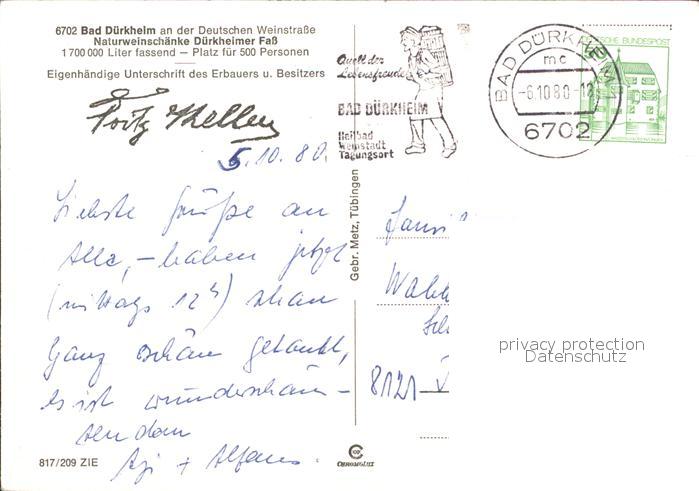 6702 Bad Dürkheim an der Deutschen Weinstraße
Naturweinschänke Dürkheimer Faß
1 700 000 Liter fassend — Platz für 500 Personen
Eigenhändige Unterschrift des Erbauers u. Besitzers
Fritz Keller
5.10.80.
Liebste Grüße an
Alle, – haben jetzt
(mittags 12 h) schon
ganz schön getankt,
es ist wunderschön –
+ Alfons.
817/209 ZIE
Gebr. Metz, Tübingen
CHROMOLUX
Quell der
Lebensfreude
BAD DÜRKHEIM
Heilbad
Weinstadt
Tagungsort
BAD DÜRKHEIM
mc
-6.10.80-18
6702
DEUTSCHE BUNDESPOST
Fami
8121
privacy protection
Datenschutz